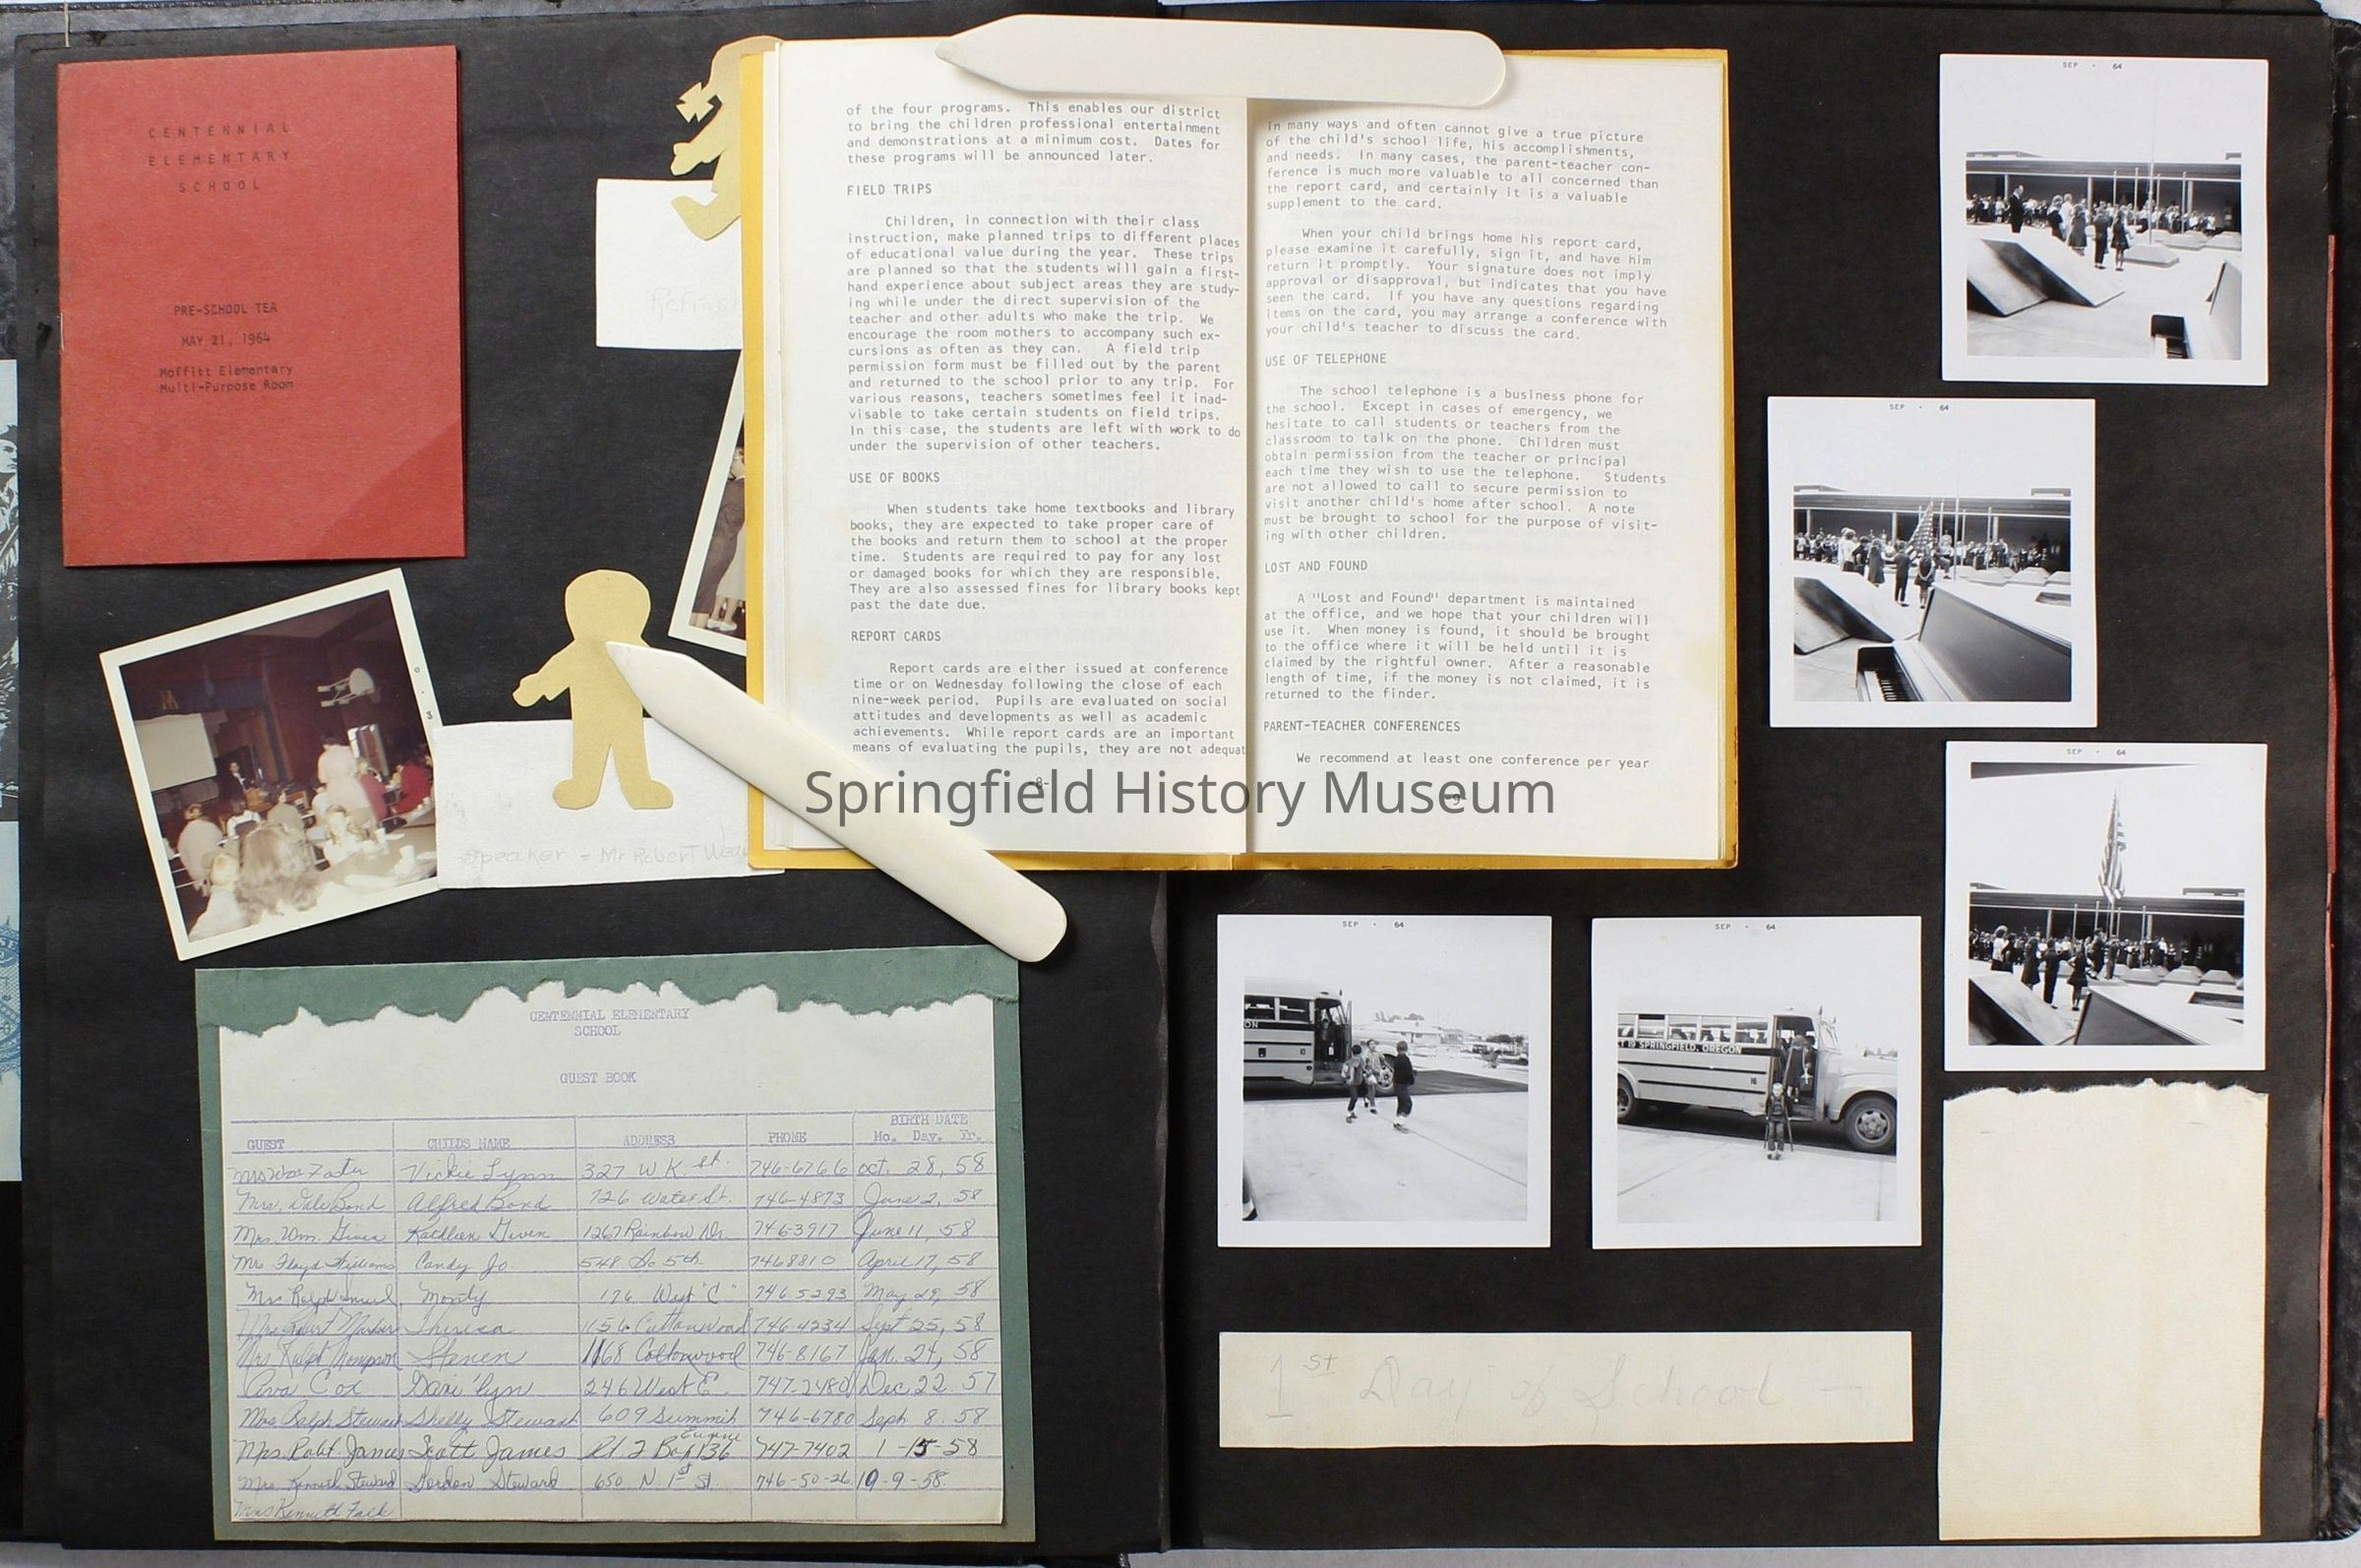 CENTENNIAL
ELEMENTARY
SCHOOL
PRE-SCHOOL TEA
MAY 21, 1964
Moffitt Elementary
Multi-Purpose Room
Refresh
Speaker - Mr Robert
of the four programs. This enables our district
to bring the children professional entertainment
and demonstrations at a minimum cost. Dates for
these programs will be announced later.
FIELD TRIPS
Children, in connection with their class
instruction, make planned trips to different places
of educational value during the year. These trips
are planned so that the students will gain a first-
hand experience about subject areas they are study-
ing while under the direct supervision of the
teacher and other adults who make the trip. We
encourage the room mothers to accompany such ex-
cursions as often as they can. A field trip
permission form must be filled out by the parent
and returned to the school prior to any trip. For
various reasons, teachers sometimes feel it inad-
visable to take certain students on field trips.
In this case, the students are left with work to do
under the supervision of other teachers.
USE OF BOOKS
When students take home textbooks and library
books, they are expected to take proper care of
the books and return them to school at the proper
time. Students are required to pay for any lost
or damaged books for which they are responsible.
They are also assessed fines for library books kept
past the date due.
REPORT CARDS
Report cards are either issued at conference
time or on Wednesday following the close of each
nine-week period. Pupils are evaluated on social
attitudes and developments as well as academic
achievements. While report cards are an important
means of evaluating the pupils, they are not adequat
-8-
in many ways and often cannot give a true picture
of the child's school life, his accomplishments,
and needs. In many cases, the parent-teacher con-
ference is much more valuable to all concerned than
the report card, and certainly it is a valuable
supplement to the card.
When your child brings home his report card,
please examine it carefully, sign it, and have him
return it promptly. Your signature does not imply
approval or disapproval, but indicates that you have
seen the card. If you have any questions regarding
items on the card, you may arrange a conference with
your child's teacher to discuss the card.
USE OF TELEPHONE
The school telephone is a business phone for
the school. Except in cases of emergency, we
hesitate to call students or teachers from the
classroom to talk on the phone. Children must
obtain permission from the teacher or principal
each time they wish to use the telephone. Students
are not allowed to call to secure permission to
visit another child's home after school. A note
must be brought to school for the purpose of visit-
ing with other children.
LOST AND FOUND
A "Lost and Found" department is maintained
at the office, and we hope that your children will
use it. When money is found, it should be brought
to the office where it will be held until it is
claimed by the rightful owner. After a reasonable
length of time, if the money is not claimed, it is
returned to the finder.
PARENT-TEACHER CONFERENCES
We recommend at least one conference per year
-9-
Springfield History Museum
SEP · 64
SEP · 64
SEP · 64
SEP · 64
SEP · 64
ON
T 19 SPRINGFIELD, OREGON
16
1st Day of School -
CENTENNIAL ELEMENTARY
SCHOOL
GUEST BOOK
GUEST CHILDS NAME ADDRESS PHONE BIRTH DATE
Mo. Day. Yr.
Mrs Wm Foster Vickie Lynn 327 W. K St. 746-6766 Oct. 28, 58
Mrs. Dale Bond Alfred Bond 726 Water St. 746-4873 June 2, 58
Mrs. Wm. Given Kathleen Given 1267 Rainbow Dr. 746-3917 June 11, 58
Mrs Floyd Williams Candy Jo 548 So 5th 746 8810 April 17, 58
Mrs Ralph Monty 176 West "C" 746 5293 May 29, 58
Mrs Robert Theresa 1156 Cottonwood 746-4234 Sept 25, 58
Mrs Ralph Thompson Steven 1168 Cottonwood 746-8167 Jan. 24, 58
Ava Cox Gari'lyn 246 West E. 747-2480 Dec 22 57
Mrs Ralph Stewart Shelly Stewart 609 Summit 746-6780 Sept 8. 58
Mrs. Robt. James Scott James Rt 2 Box 136 Eugene 747-7402 1-15-58
Mrs. Kenneth Steward Gordon Steward 650 N. 1st St. 746-50-26 10-9-58
Mrs Kenneth Falk